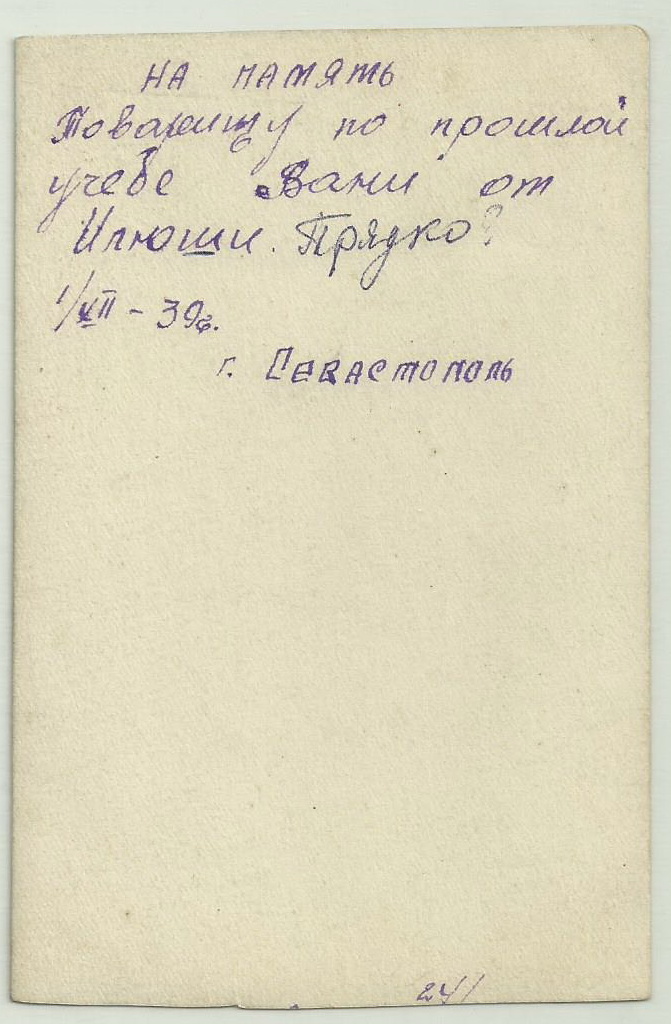 на память
Товарищу по прошлой
учебе Вани от
Илюши. Прядко?
1/XII - 39г.
г. Севастополь
241